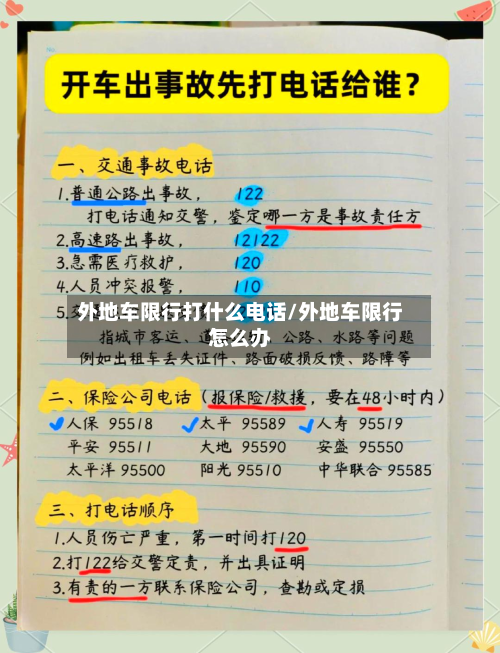 开车出事故先打电话给谁？
一、交通事故电话
1.普通公路出事故， 122
打电话通知交警，鉴定哪一方是事故责任方
2.高速路出事故， 12122
3.急需医疗救护， 120
4.人员冲突报警， 110
5.
外地车限行打什么电话/外地车限行
怎么办
指城市客运、道 公路、水路等问题
例如出租车丢失证件、路面破损反馈、路障等
二、保险公司电话（报保险/救援，要在48小时内）
人保 95518 太平 95589 人寿 95519
平安 95511 大地 95590 安盛 95550
太平洋 95500 阳光 95510 中华联合 95585
三、打电话顺序
1.人员伤亡严重，第一时间打120
2.打122给交警定责，并出具证明
3.有责的一方联系保险公司，查勘或定损